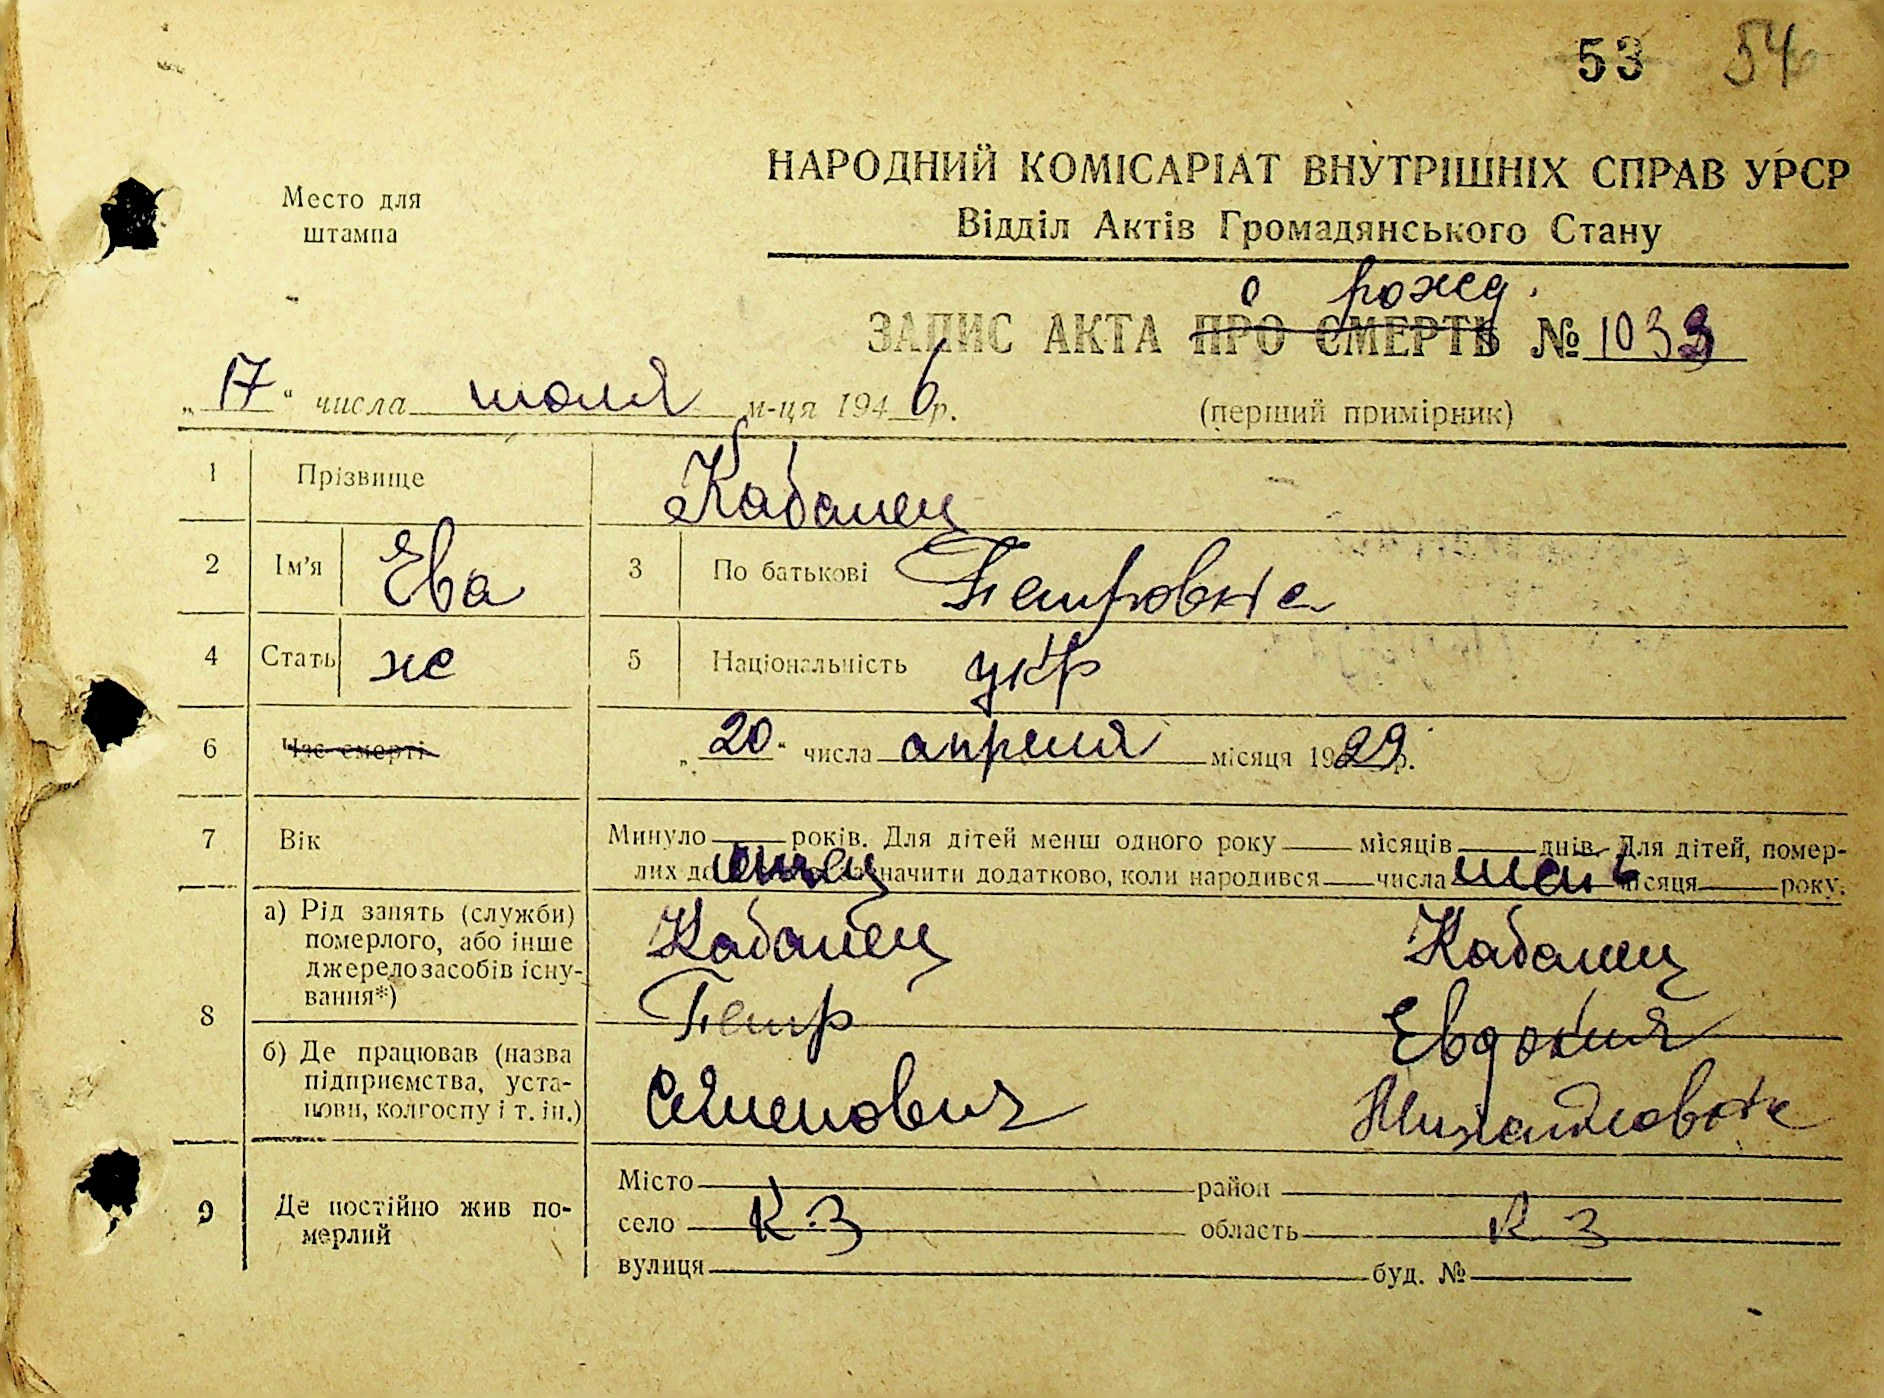 53 54
Место для
штампа
НАРОДНИЙ КОМІСАРІАТ ВНУТРІШНІХ СПРАВ УРСР
Відділ Актів Громадянського Стану
о рожд.
ЗАПИС АКТА ПРО СМЕРТЬ № 1033
„17“ числа июля м-ця 1946 р. (перший примірник)
1 Прізвище Кабанец
2 Ім'я Ева 3 По батькові Петровна
4 Стать же 5 Національність укр
6 Час смерті „20“ числа апреля місяця 1929 р.
7 Вік Минуло років. Для дітей менш одного року місяців днів. Для дітей, помер-
лих до значити додатково, коли народився числа місяця року.
отец мать
8 а) Рід занять (служби)
померлого, або інше
джерело засобів існу-
вання*)
Кабанец Кабанец
Петр Евдокия
б) Де працював (назва
підприємства, уста-
нови, колгоспу і т. ін.)
Семенович Михайловна
9 Де постійно жив по-
мерлий
Місто район
село К-З область К З
вулиця буд. №